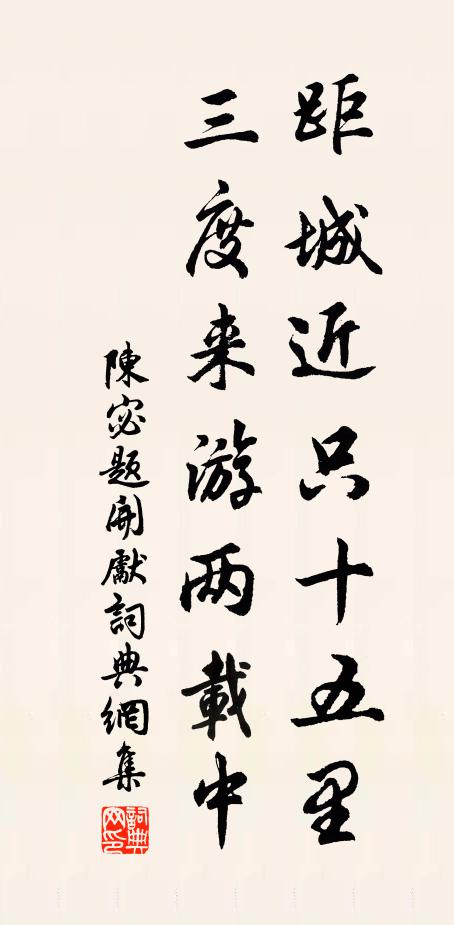 距城近只十五里
三度来游两載中
陳宓題開巖詞典網集
詞典網印